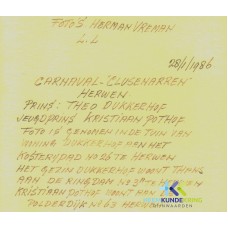 FOTO'S HERMAN VREMAN
L.L
28/1/1986
CARNAVAL - 'CLUSENARREN'
HERWEN
PRINS: THEO DUKKERHOF
JEUGDPRINS KRISTIAAN POTHOF
FOTO IS GENOMEN IN DE TUIN VAN
WONING DUKKERHOF AAN HET
TE HERWEN
HET GEZIN DUKKERHOF WOONT THANS
AAN DE RINGDAM
KRISTIAAN POTHOF WOONT AAN
POLDERDIJK No 63 HERWEN
KUNDEKRING
RIJNWAARDEN